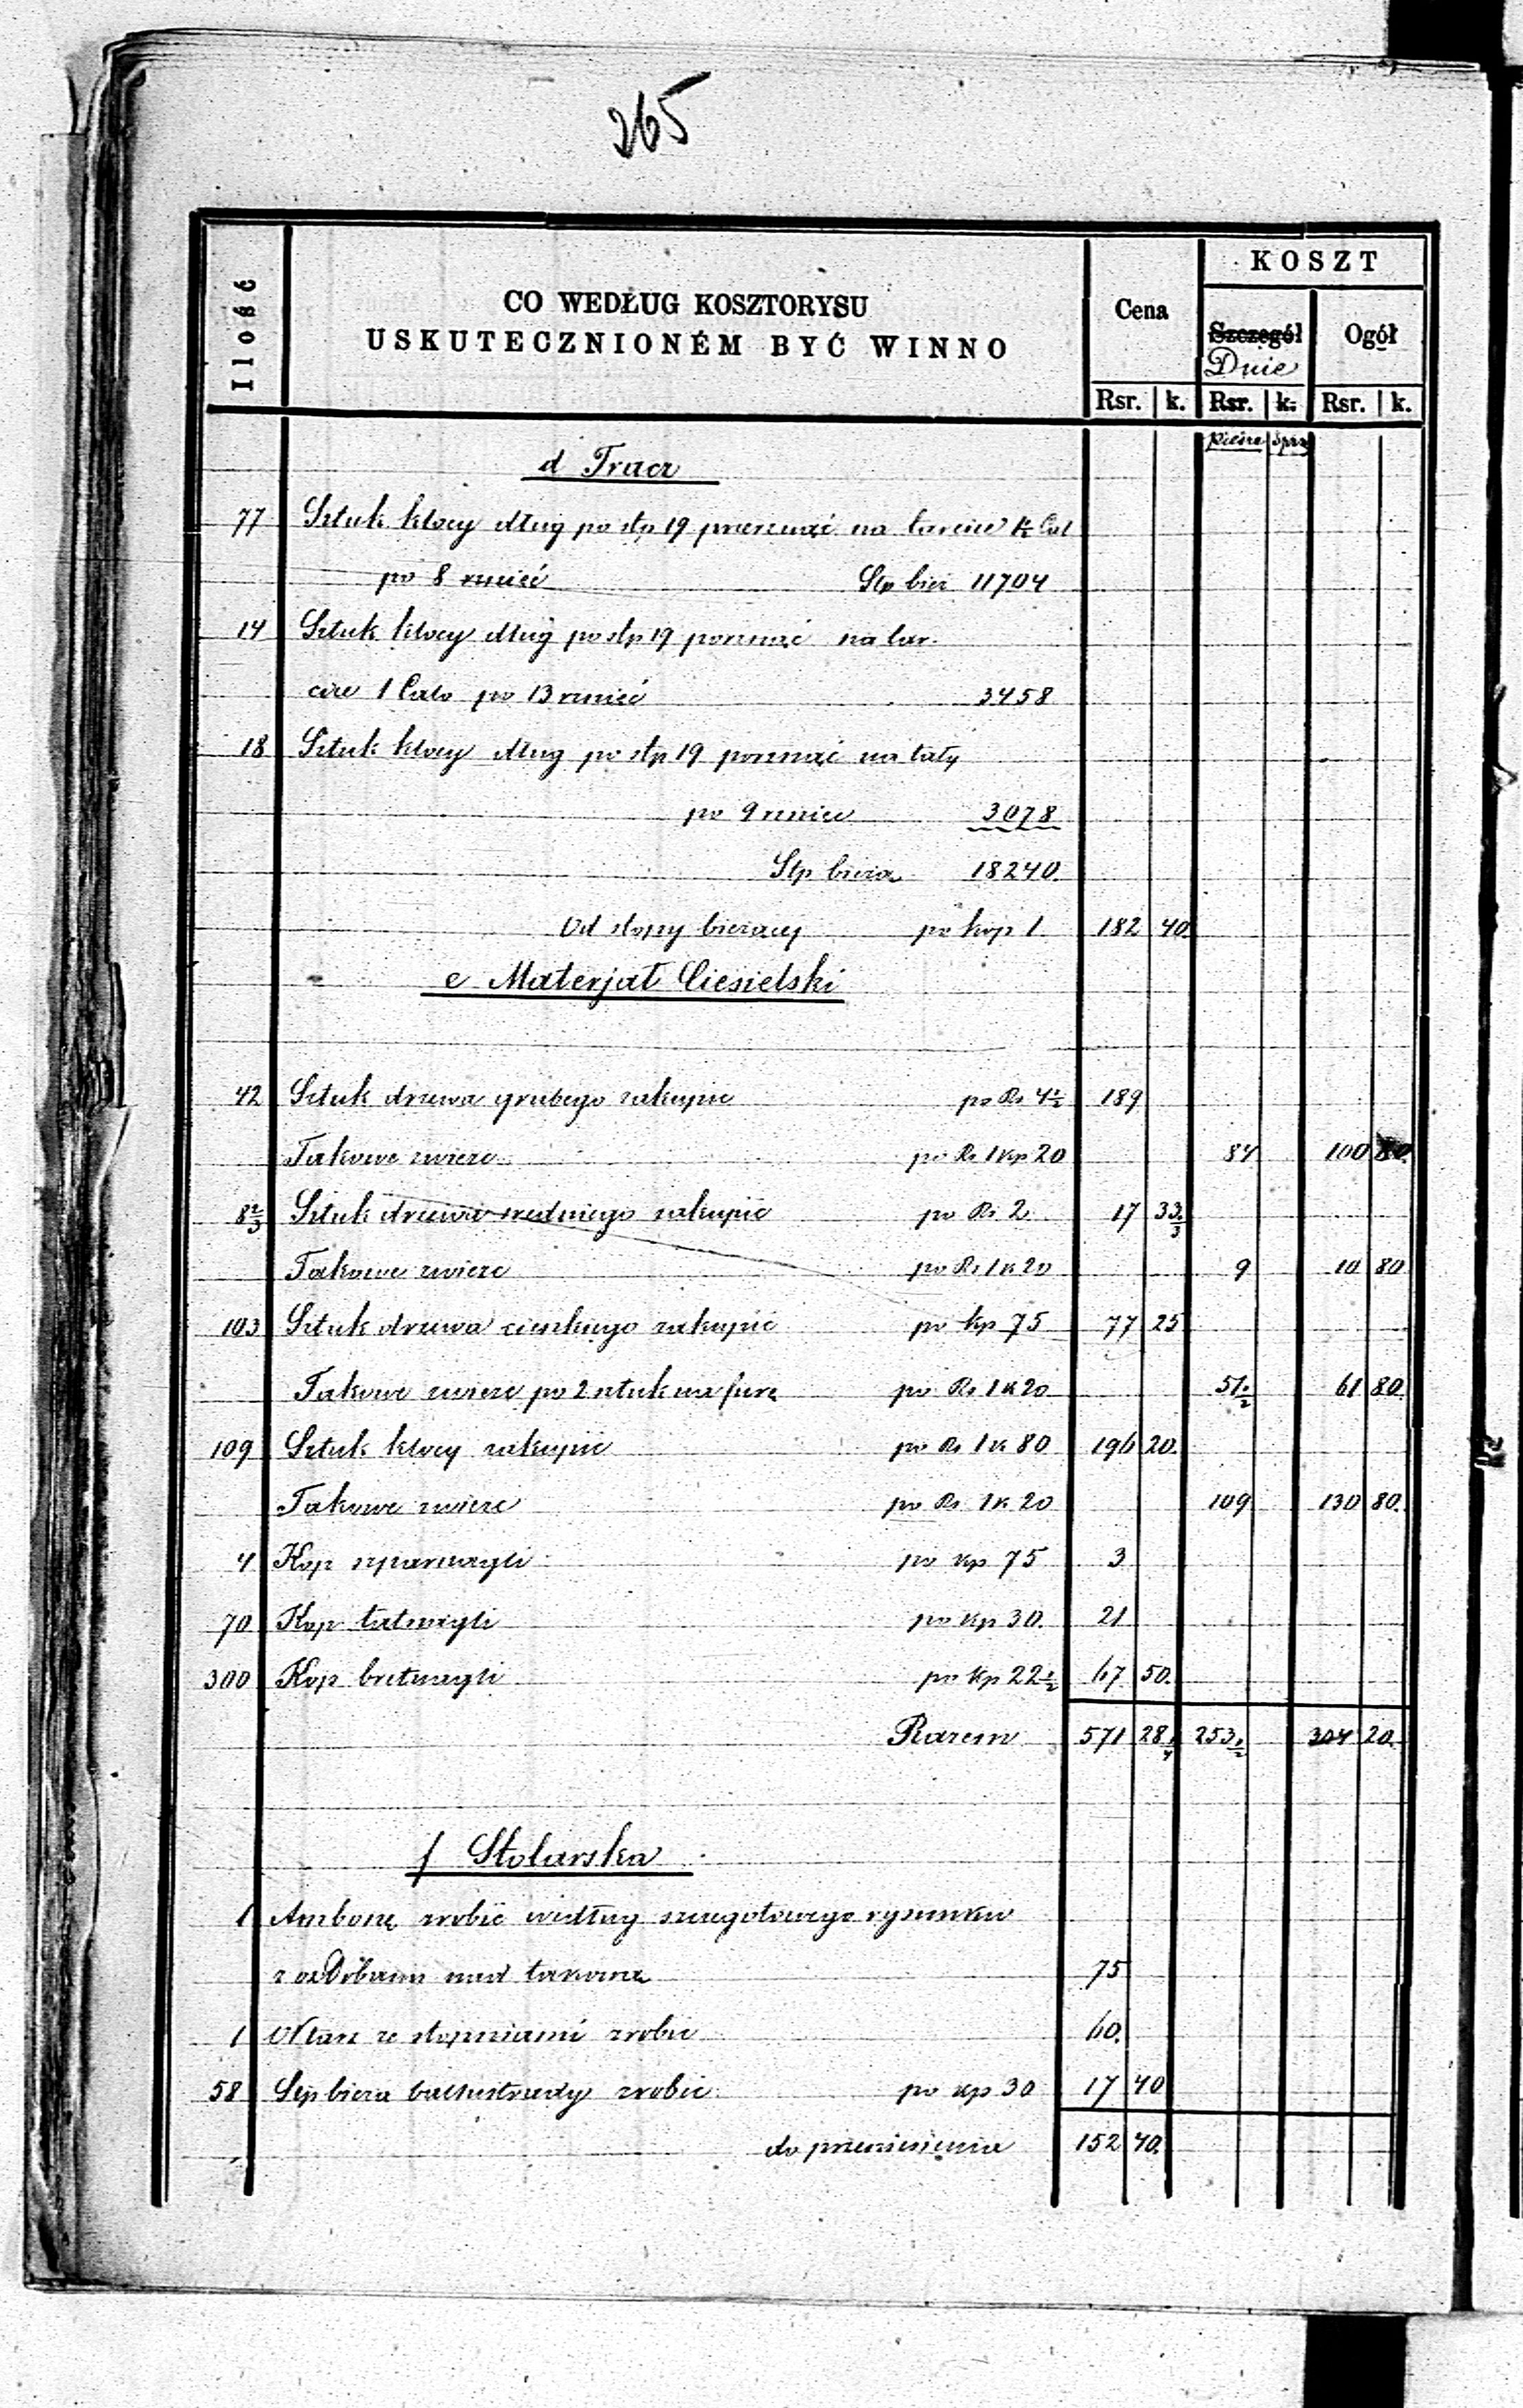 265
Ilość
CO WEDŁUG KOSZTORYSU
USKUTECZNIONÉM BYĆ WINNO
Cena
KOSZT
Szczegół Ogół
Dnie
Rsr. k. Rsr. k. Rsr. k.
piesze sprz
d Tracz
77 Sztuk klocy dług po stp 19 przerznąć na tarcice 1½ Cal
po 8 rznięć Stp bież 11704
14 Sztuk klocy dług po stp 19 porznąć na tar-
cice 1 Calo po 13 rznięć 3458
18 Sztuk klocy dług po stp 19 porznąć na łaty
po 9 rznięc 3078
Stp bieżą 18240
Od stopy bieżący po kop 1 182 40
e Materjał Ciesielski
42 Sztuk drzewa grubego zakupic po Rs 4½ 189
Takowe zwiezc po Rs 1 kp 20 84 100 80
8⅔ Sztuk drzewa średniego zakupić po Rs 2 17 33
Takowe zwiezc po Rs 1 k 20 9 10 80
103 Sztuk drzewa cienkiego zakupić po kp 75 77 25
Takowe zwiezc po 2 sztuk na furę po Rs 1 k 20 51½ 61 80
109 Sztuk klocy zakupic po Rs 1 k 80 196 20
Takowe zwiezc po Rs 1 k 20 109 130 80
4 Kop szparnagli po kp 75 3
70 Kop łatnagli po kp 30 21
300 Kop bretnagli po kp 22½ 67 50
Razem 571 28 253½ 304 20
f Stolarska
1 Ambonę zrobić według szczegołowego rysunku
z ozdobami nad takową 75
1 Ołtarz ze stopniami zrobic 60
58 Stp bieżą balustrady zrobic po kp 30 17 40
do przeniesienia 152 40